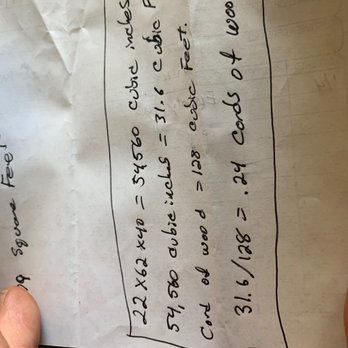 22 x 62 x 40 = 54560 cubic inches
54,560 cubic inches = 31.6 cubic F
Cord of wood = 128 cubic Feet.
31.6/128 = .24 cords of woo
Square Feet